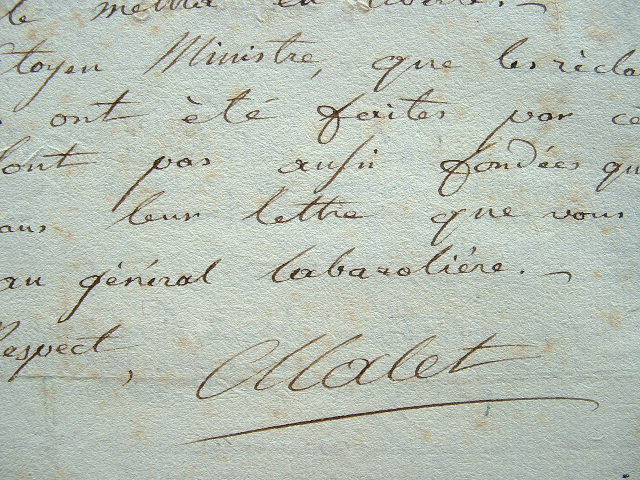 le mettre en
itoyen Ministre, que les récla
s ont été faites par ce
sont pas aussi fondées qu
ans leur lettre que vous
au général Labarolière. _
Respect, Malet